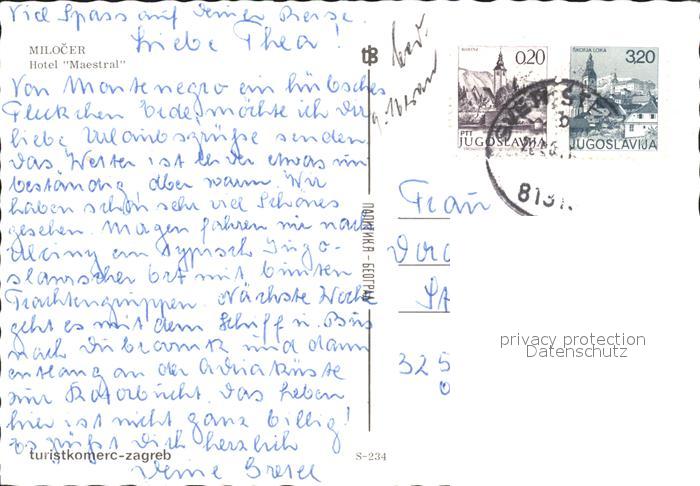 Viel Spass auf Deiner Reise.
Liebe Thea!
MILOČER
Hotel "Maestral"
Von Montenegro ein hübsches
Fleckchen Erde, möchte ich Dir
liebe Urlaubsgrüße senden.
Das Wetter ist leider etwas un-
beständig, aber warm. Wir
haben schon sehr viel Schönes
gesehen. Morgen fahren wir nach
Ulcinj ein typisch Jugo-
slawischer Ort mit bunten
Trachtengruppen. Nächste Woche
geht es mit dem Schiff u. Bus
nach Dubrovnik und dann
entlang an der Adriaküste
zur Kotorbucht. Das Leben
hier ist nicht ganz billig!
Es grüßt Dich herzlich
turistkomerc-zagreb
Deine Gretel
S-234
ПОЛИТИКА - БЕОГРАД
tB
0,20
PTT
JUGOSLAVIJA
ŠKOFJA LOKA
3,20
JUGOSLAVIJA
Frau
325
privacy protection
Datenschutz